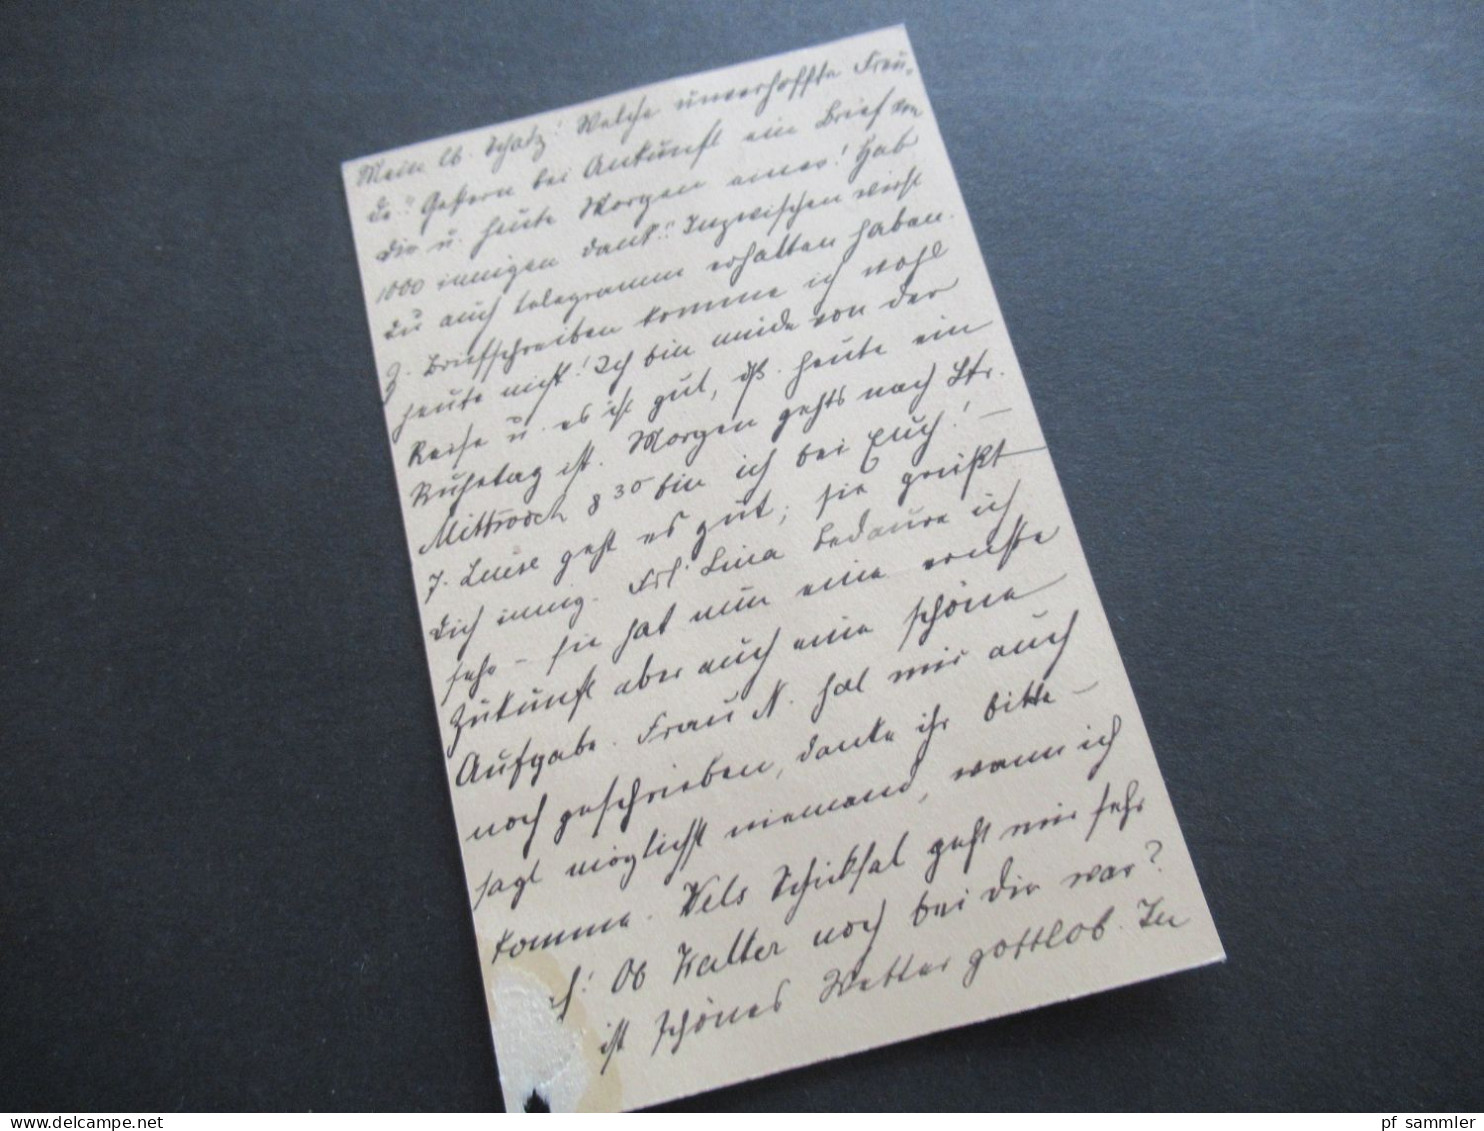 Mein lb. Schatz! Welche unverhoffte Freu-
de!! Gestern bei Ankunft ein Brief von
Dir u. heute Morgen einer! Hab
1000 innigen Dank!! Inzwischen wirst
Du auch Telegramm erhalten haben.
Z. Briefschreiben komme ich wohl
heute nicht! Ich bin müde von der
Reise u. es ist gut, dß. heute ein
Ruhetag ist. Morgen gehts nach Str.
Mittwoch 8 30 bin ich bei Euch! –
T. Luise geht es gut; sie grüßt
Dich innig. Frl. Lina bedaure ich
sehr – sie hat nun eine ernste
Zukunft aber auch eine schöne
Aufgabe. Frau N. hat mir auch
noch geschrieben, danke ihr bitte –
sagt möglichst niemand, wann ich
komme. Schicksal geht mir sehr
Ob Walter noch bei Dir war?
ist schönes Wetter gottlob. In
pf_sammler